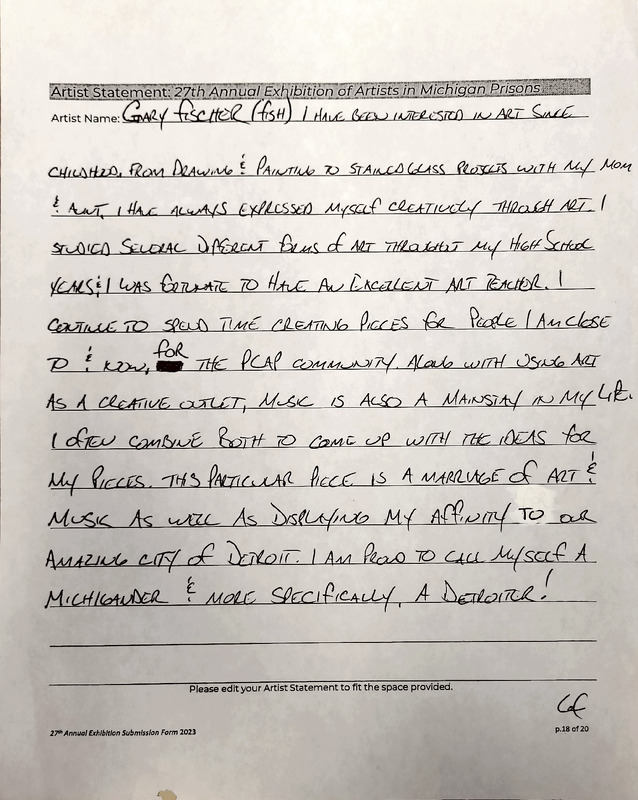 Artist Statement: 27th Annual Exhibition of Artists in Michigan Prisons
Artist Name: GARY FISCHER (FISH) I HAVE BEEN INTERESTED IN ART SINCE
CHILDHOOD, FROM DRAWING & PAINTING TO STAINED GLASS PROJECTS WITH MY MOM
& AUNT, I HAVE ALWAYS EXPRESSED MYSELF CREATIVELY THROUGH ART. I
STUDIED SEVERAL DIFFERENT FORMS OF ART THROUGHOUT MY HIGH SCHOOL
YEARS & I WAS FORTUNATE TO HAVE AN EXCELLENT ART TEACHER. I
CONTINUE TO SPEND TIME CREATING PIECES FOR PEOPLE I AM CLOSE
TO & NOW, FOR THE PCAP COMMUNITY. ALONG WITH USING ART
AS A CREATIVE OUTLET, MUSIC IS ALSO A MAINSTAY IN MY LIFE.
I OFTEN COMBINE BOTH TO COME UP WITH THE IDEAS FOR
MY PIECES. THIS PARTICULAR PIECE IS A MARRIAGE OF ART &
MUSIC AS WELL AS DISPLAYING MY AFFINITY TO OUR
AMAZING CITY OF DETROIT. I AM PROUD TO CALL MYSELF A
MICHIGANDER & MORE SPECIFICALLY, A DETROITER!
Please edit your Artist Statement to fit the space provided.
GF
27th Annual Exhibition Submission Form 2023
p.18 of 20